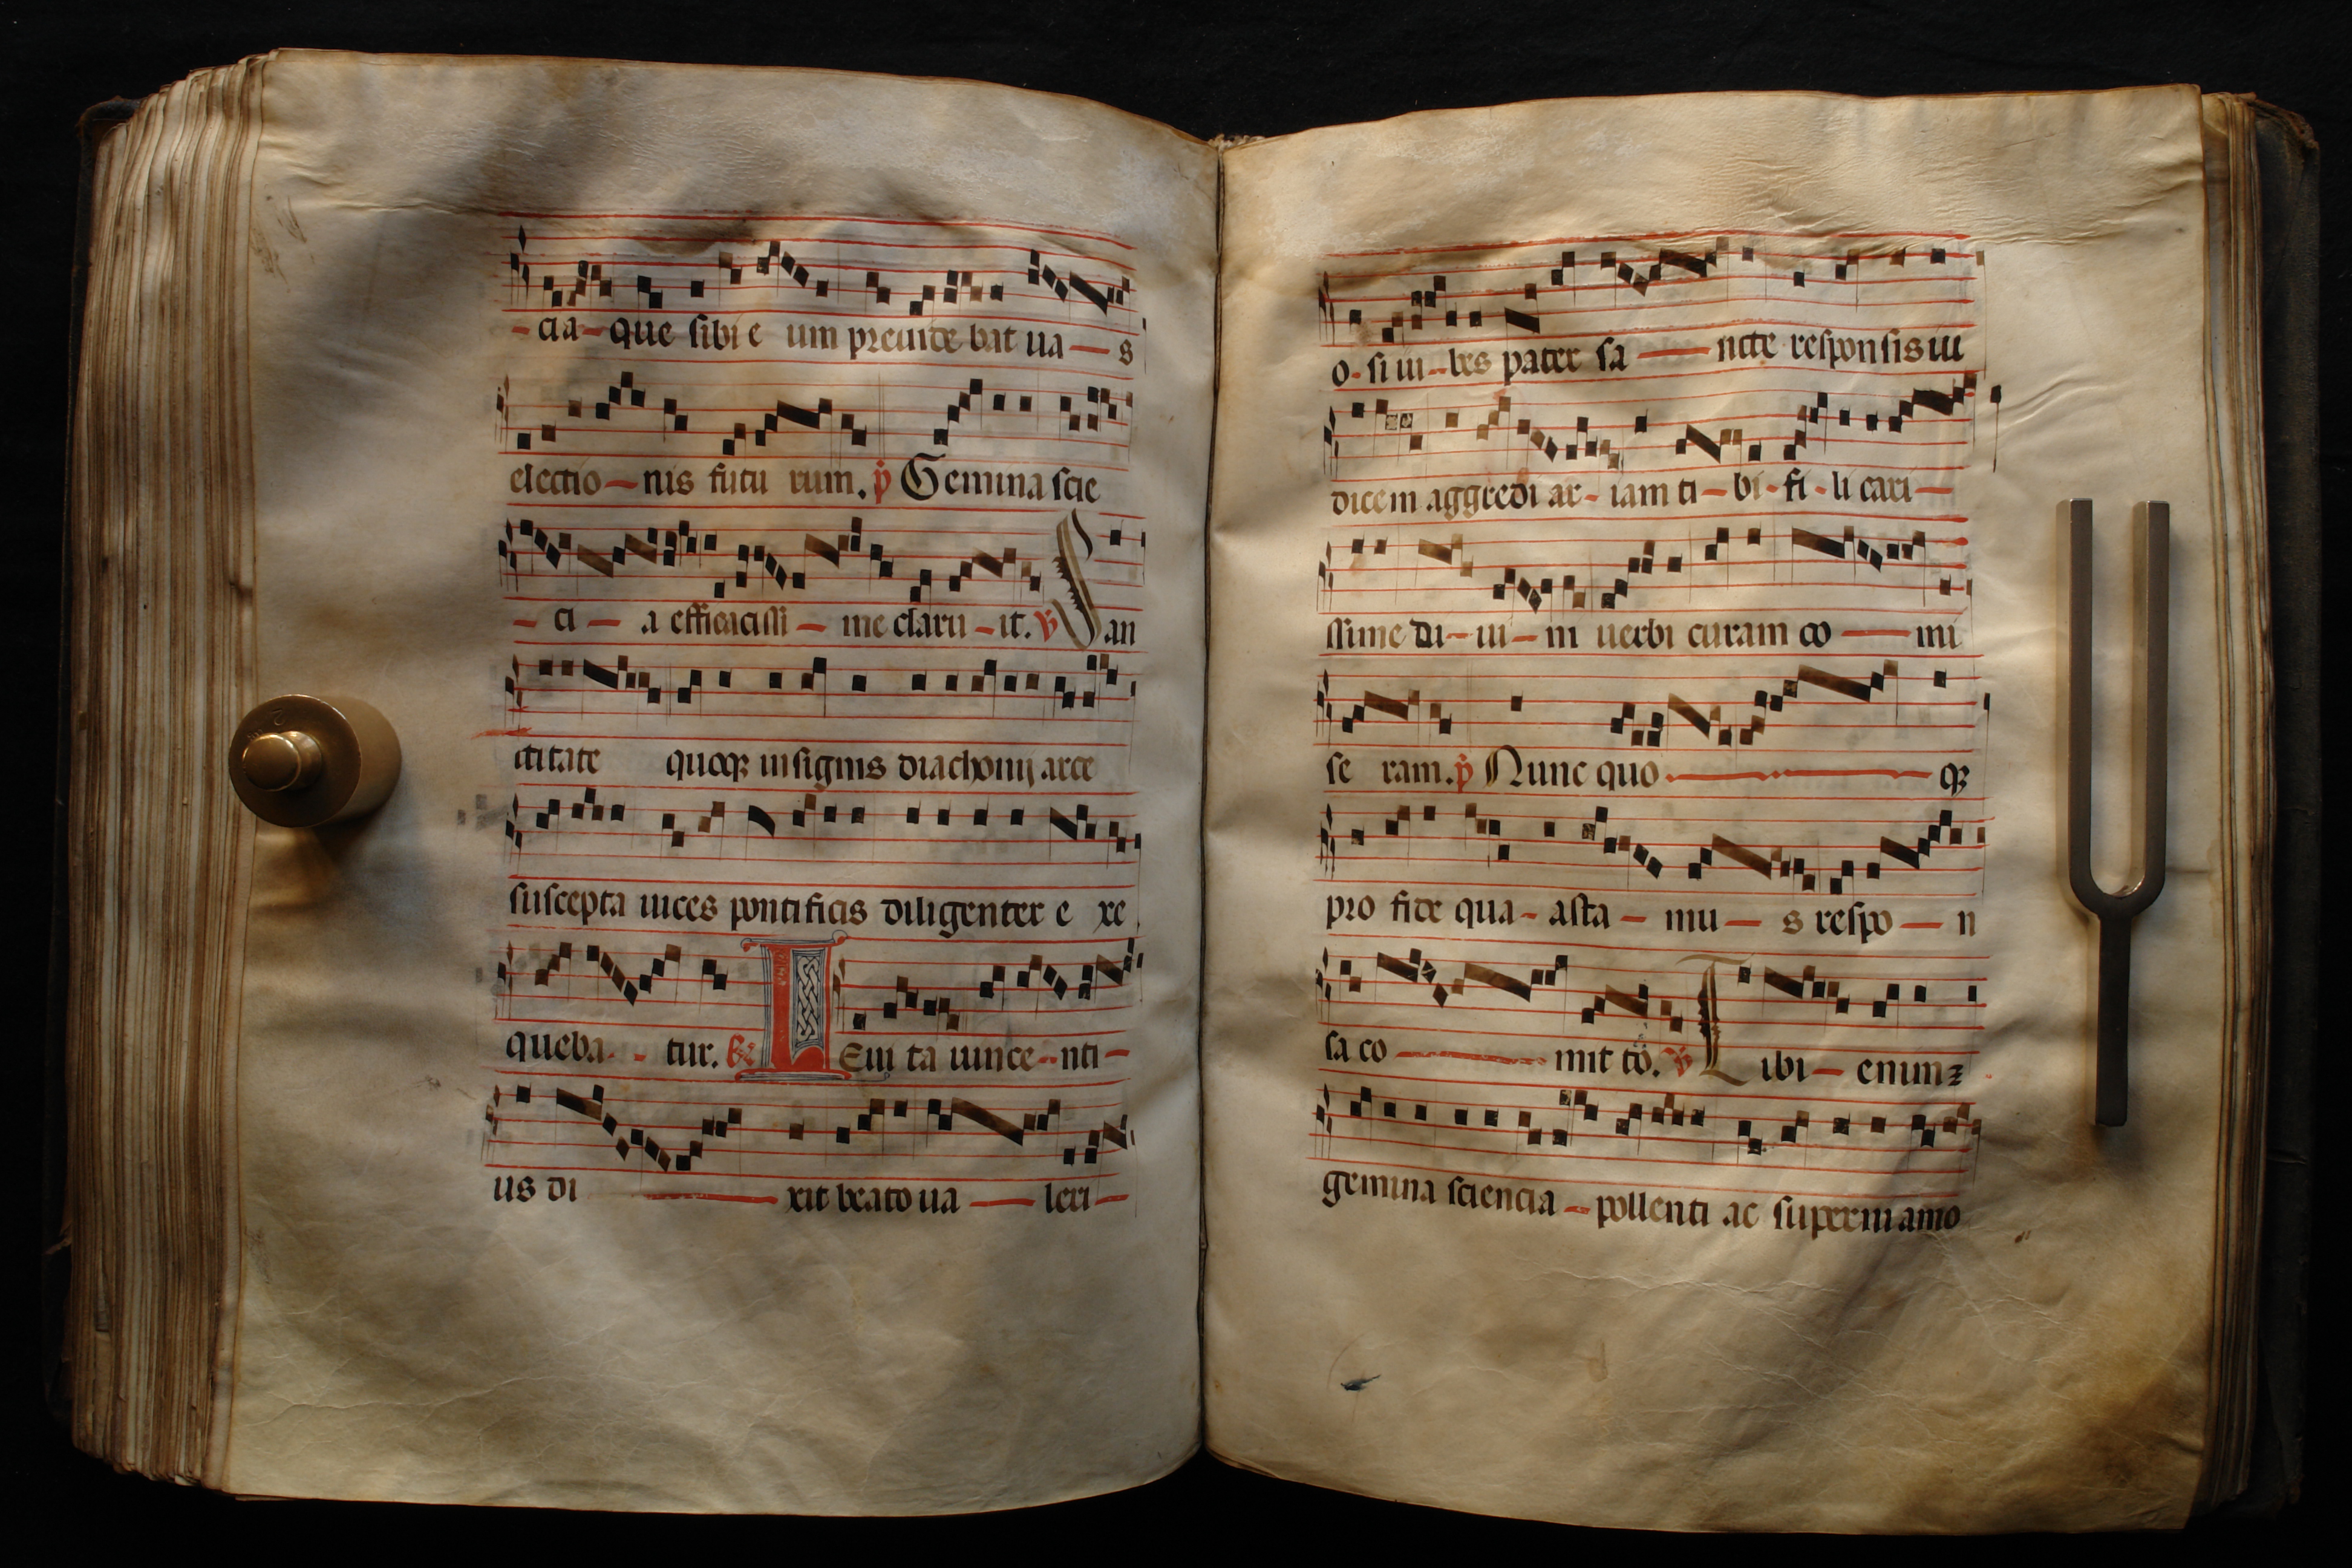 - cia - que sibi e um preuide bat ua — s
electio — nis futu rum. p Gemina scie
- ci — a efficacissi — me claru - it. V San
ctitate quoqꝫ insignis diachonij arce
suscepta uices pontificis diligenter e xe
queba - - tur. R I Eui ta uince - nti -
us di — xit beato ua — leri -
o - si iu - bes pater sa — ncte responsis iu
dicem aggredi ar - iam ti - bi - fi - li cari —
ssime di - ui - ni uerbi curam co — mi
se ram. p Nunc quo — qꝫ
pro fide qua - asta - mu — s respo — n
sa co — mit to. V T ibi - enim ꝫ
gemina sciencia - pollenti ac superni amo
2